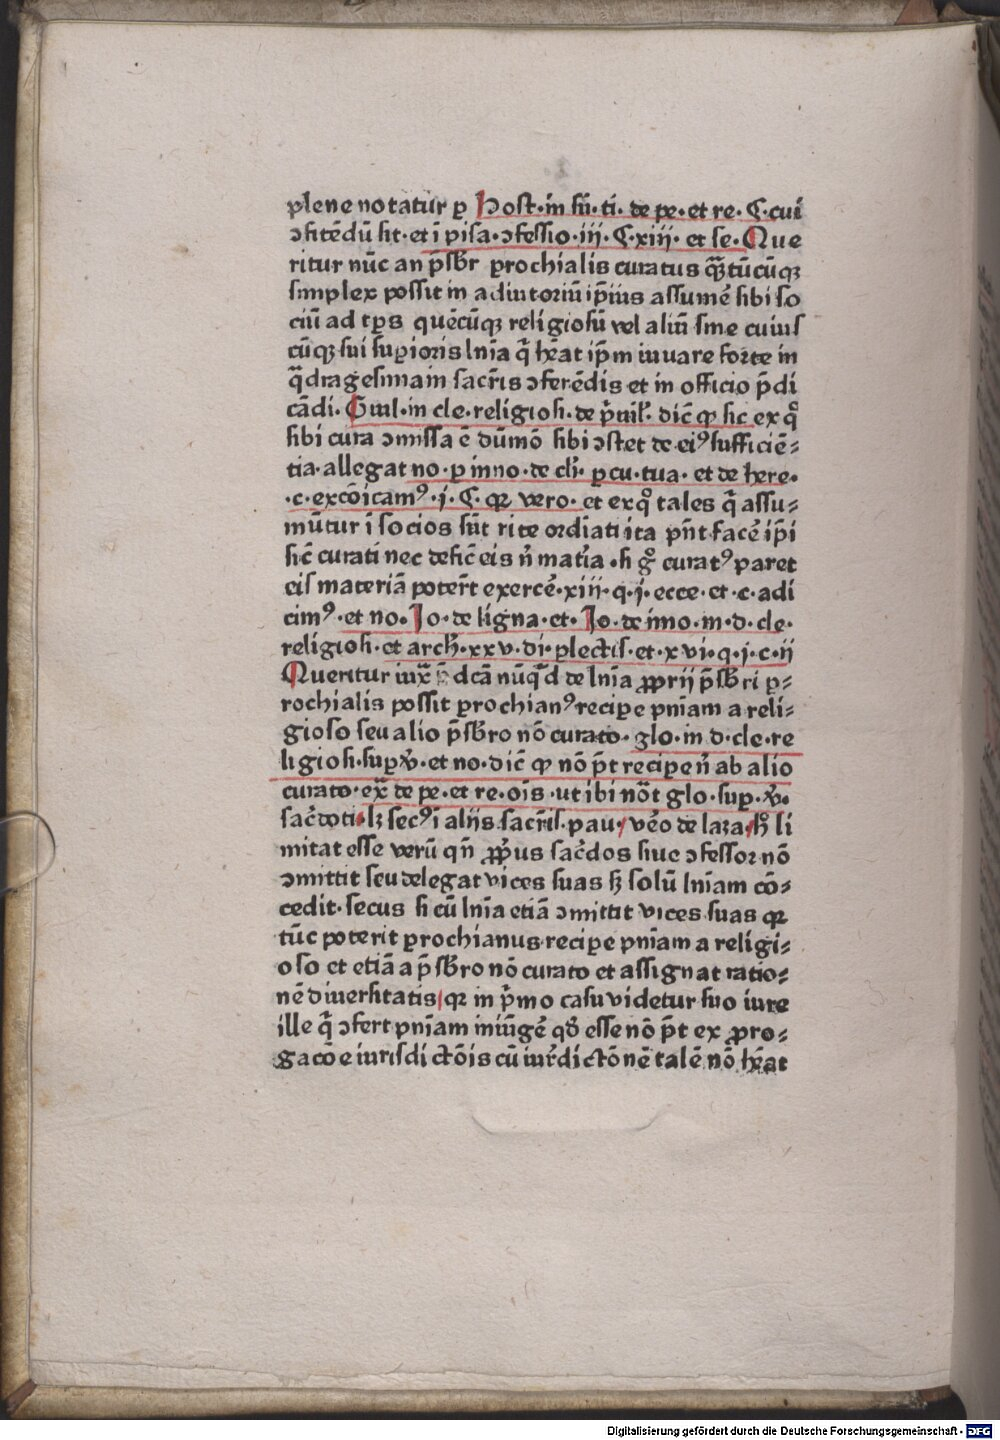 plene notatur ꝑ Host·in sū·ti· de pe·et re·ꝯ·cui
ꝯfitēdū sit·et ī pisa·ꝯfessio·iij·ꝯ·xiij· et se·Que
ritur nūc an p̄sbr̄ ꝑrochialis curatus qƷ̄tūcūqꝫ
simplex possit in adiutoriū ip̄ius assumē sibi so
ciū ad tp̄s quēcūqꝫ religiosū vel aliū sine cuius
cūqꝫ sui suꝑioris lnīa q̄ hēat ip̄m iuuare forte in
q̄dragesima in sacr̄is ꝯferēdis et in officio p̄di
cādi· Guil·in cle·religios·de p̄uil'· dic̄ ꝙ sic ex qͦ
sibi cura ꝯmissa ē dūmō sibi ꝯstet de eiꝰ sufficiē⸗
tia·allegat no·ꝑ inno·de cli·ꝑ cu·tua· et de here·
·c·excōicamꝰ·i·ꝯ·qꝛ vero· et ex qͦ tales q̄ assu⸗
mūtur ī socios sūt rite ordīati ita p̄nt facē ip̄i
sic̄ curati nec defic̄ eis n̄ mat̄ia·si gͦ curatꝰ paret
eis materiā poter̄t exercē·xiij·q·i·ecce·et·c·adi
cimꝰ·et no·Jo·de ligna·et·Jo·de imo·in·d·cle·
religios·et arch̄·xxv·di·ꝑlectis·et·xvi·q·i·c·ij
Queritur iux̄ dcā nūq̄d de lnīa ꝓprij p̄sbr̄i ꝑ⸗
rochialis possit ꝑrochianꝰ recipe pnīam a reli⸗
gioso seu alio p̄sbr̄o nō curato· glo·in d·cle·re
ligios·suꝑ v̄·et no·dic̄ ꝙ nō p̄t recipe n̄ ab alio
curato·ex̄ de pe·et re·oīs·ut ibi nōt glo·suꝑ·v̄·
sac̄doti·lꝫ secꝰ ī alijs sacr̄is·pau·veō de laza·hͦ li
mitat esse verū qn̄ ꝓp̄us sac̄dos siue ꝯfessor nō
ꝯmittit seu delegat vices suas sꝫ solū lnīam cō⸗
cedit·secus si cū lnīa etiā ꝯmittit vices suas qꝛ
tūc poterit ꝑrochianus recipe pnīam a religi⸗
oso et etiā a p̄sbr̄o nō curato et assignat ratio⸗
nē diuersitatis qꝛ in p̄mo casu videtur suo iure
ille q̄ ꝯfert pnīam iniūgē qd̄ esse nō p̄t ex ꝓro⸗
gacōe iurisdictōis cū iur̄dictōnē talē nō hēat
Digitalisierung gefördert durch die Deutsche Forschungsgemeinschaft - DFG